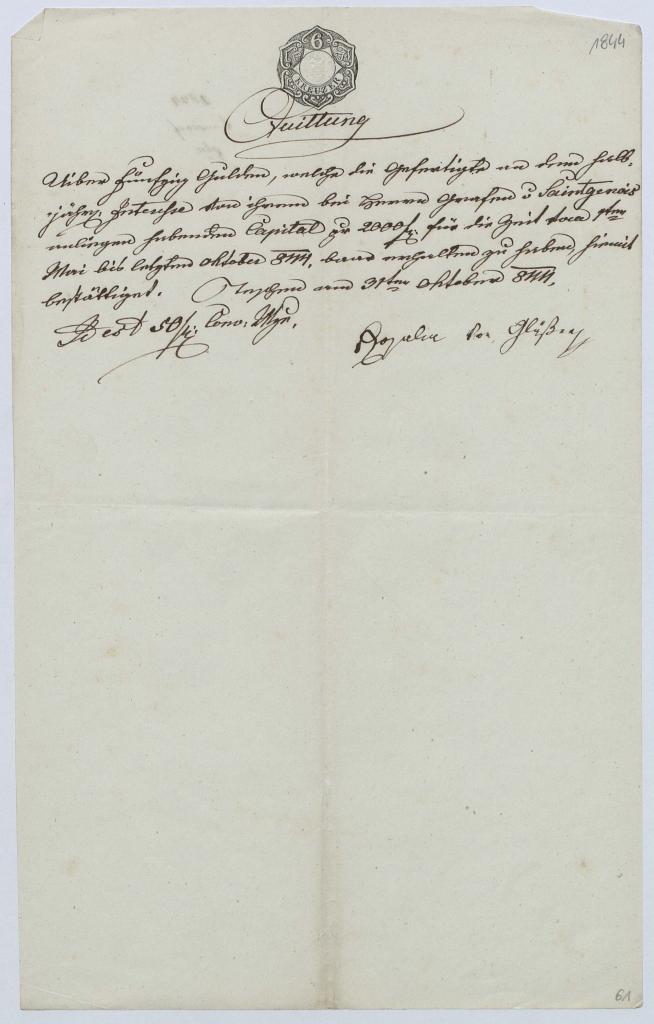 1844
6
KREUZER
Quittung
Uiber Fünfzig Gulden, welche die Gefertigte an dem halb-
jähr. Intresse von ihrem bei Herrn Grafen v Saintgenois
anliegen habenden Capital pr 2000 f. für die Zeit vom 1ten
Mai bis letzten Oktober 844. baar erhalten zu haben, hiemit
bestättiget. Teschen am 31ten Oktober 844.
Id est 50 f. Conv. Mze.
Rosalia von
61